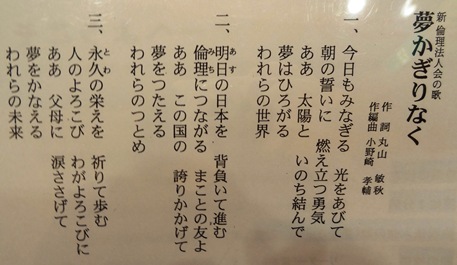 新 倫理法人会の歌
夢かぎりなく
作詞 丸山 敏秋
作編曲 小野崎 孝輔
一、今日もみなぎる 光をあびて
朝の誓いに 燃え立つ勇気
ああ 太陽と いのち結んで
夢はひろがる
われらの世界
二、明日の日本を 背負いて進む
あす
倫理につながる まことの友よ
みち
ああ この国の 誇りかかげて
夢をつたえる
われらのつとめ
三、永久の栄えを 祈りて歩む
とわ
人のよろこび わがよろこびに
ああ 父母に 涙ささげて
夢をかなえる
われらの未来